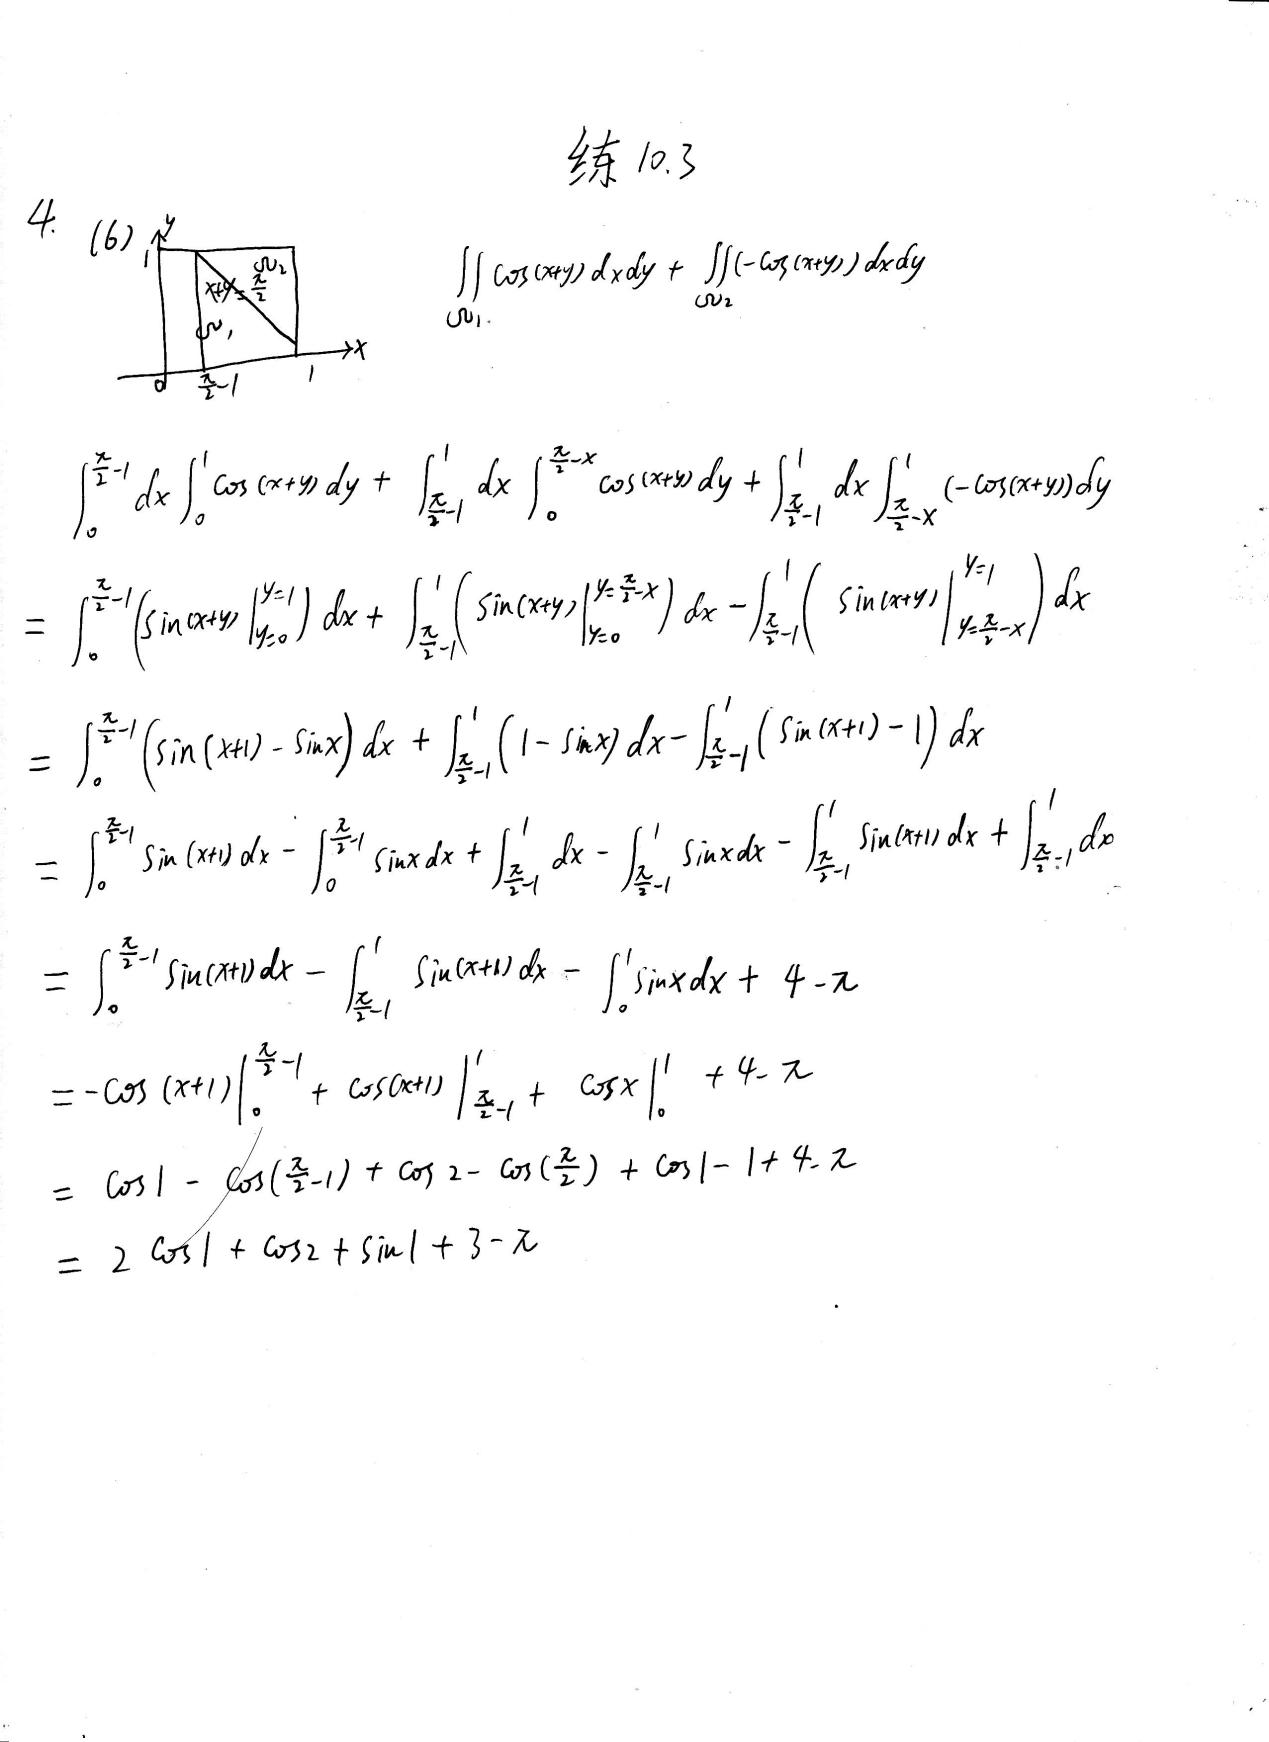 练 10.3
4. (6)
y
1
Ω₂
x+y=π/2
Ω₁
x
0 π/2-1 1
∬_{Ω₁} cos(x+y) dxdy + ∬_{Ω₂} (-cos(x+y)) dxdy
∫_0^{π/2-1} dx ∫_0^1 cos(x+y) dy + ∫_{π/2-1}^1 dx ∫_0^{π/2-x} cos(x+y) dy + ∫_{π/2-1}^1 dx ∫_{π/2-x}^1 (-cos(x+y)) dy
= ∫_0^{π/2-1} (sin(x+y)|_{y=0}^{y=1}) dx + ∫_{π/2-1}^1 (sin(x+y)|_{y=0}^{y=π/2-x}) dx - ∫_{π/2-1}^1 (sin(x+y)|_{y=π/2-x}^{y=1}) dx
= ∫_0^{π/2-1} (sin(x+1) - sinx) dx + ∫_{π/2-1}^1 (1-sinx) dx - ∫_{π/2-1}^1 (sin(x+1)-1) dx
= ∫_0^{π/2-1} sin(x+1) dx - ∫_0^{π/2-1} sinx dx + ∫_{π/2-1}^1 dx - ∫_{π/2-1}^1 sinx dx - ∫_{π/2-1}^1 sin(x+1) dx + ∫_{π/2-1}^1 dx
= ∫_0^{π/2-1} sin(x+1) dx - ∫_{π/2-1}^1 sin(x+1) dx - ∫_0^1 sinx dx + 4-π
= -cos(x+1)|_0^{π/2-1} + cos(x+1)|_{π/2-1}^1 + cosx|_0^1 + 4-π
= cos1 - cos(π/2-1) + cos2 - cos(π/2) + cos1 - 1 + 4-π
= 2 cos1 + cos2 + sin1 + 3-π